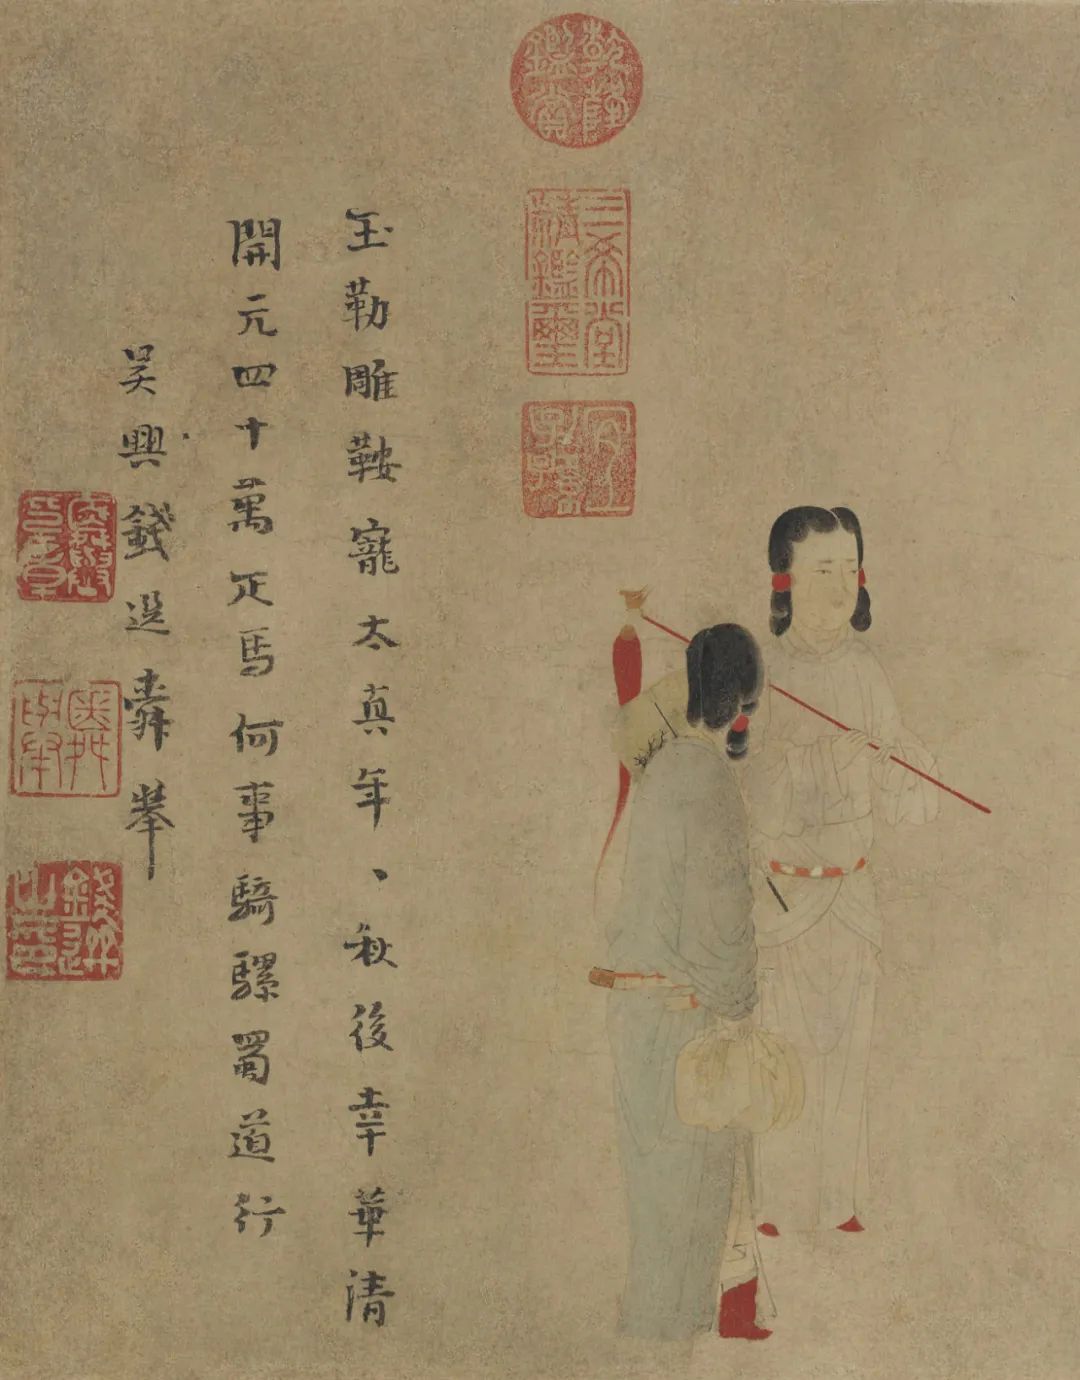 乾隆鑑賞
三希堂精鑑璽
宜子孫
玉勒雕鞍寵太真年、秋後幸華清
開元四十萬疋馬何事騎騾蜀道行
吳興錢選舜舉
舜舉印章
錢選之印